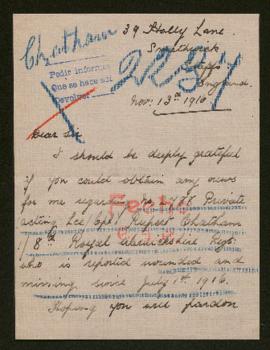 Chatham
39 Holly Lane
Smethwick
Staffs
England.
Pedir informes
Que se hace all
Devolver
Nov: 13th 1916.
Dear Sir
I should be deeply grateful
if you could obtain any news
for me regarding No Private
acting Lce/Cpl/ Rupert Chatham
1/8th Royal Warwickshire Regt.
who is reported wounded and
missing since July 1st 1916.
Hoping you will pardon